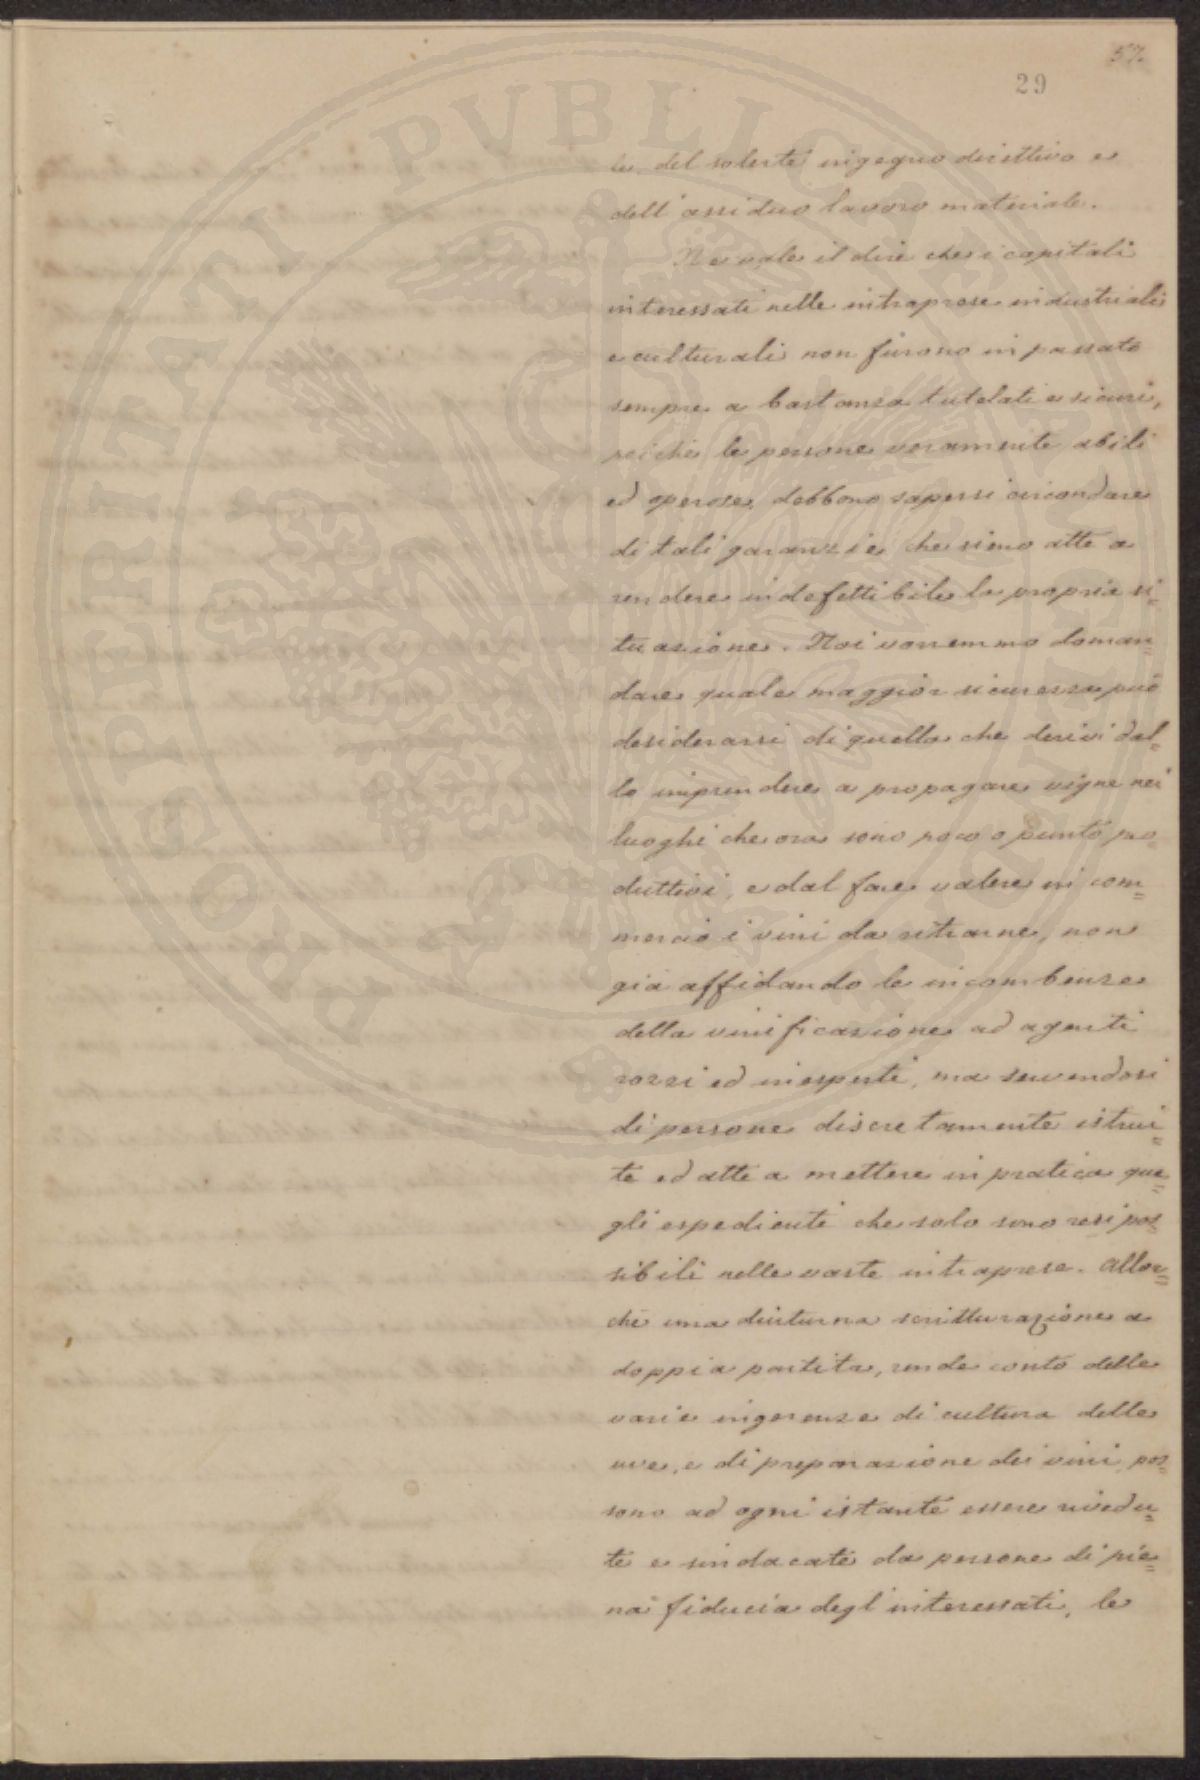 57.
29
le, del solerte ingegno direttivo e
dell'assiduo lavoro materiale.
Ne vale il dire che i capitali
interessati nelle intraprese industriali
e culturali non furono in passato
sempre a bastanza tutelati e sicuri,
poiché le persone veramente abili
ed operose, debbono sapersi circondare
di tali garanzie che sieno atte a
rendere indefettibile la propria si=
tuazione. Noi vorremmo doman=
dare quale maggior sicurezza può
desiderarsi di quella che derivi dal=
lo imprendere a propagare vigne nei
luoghi che ora sono poco o punto pro=
duttivi, e dal fare valere in com=
mercio i vini da ritrarne, non
già affidando le incombenze
della vinificazione ad agenti
rozzi ed inesperti, ma servendosi
di persone discretamente istrui=
te ed atte a mettere in pratica que=
gli espedienti che solo sono resi pos=
sibili nelle vaste intraprese. Allor=
chè una diuturna scritturazione a
doppia partita, rende conto delle
varie ingerenze di cultura delle
uve, e di preparazione dei vini, pos=
sono ad ogni istante essere rivedu=
te e sindacate da persone di pie=
na fiducia degl'interessati, le
PROSPERITATI PVBLICAE